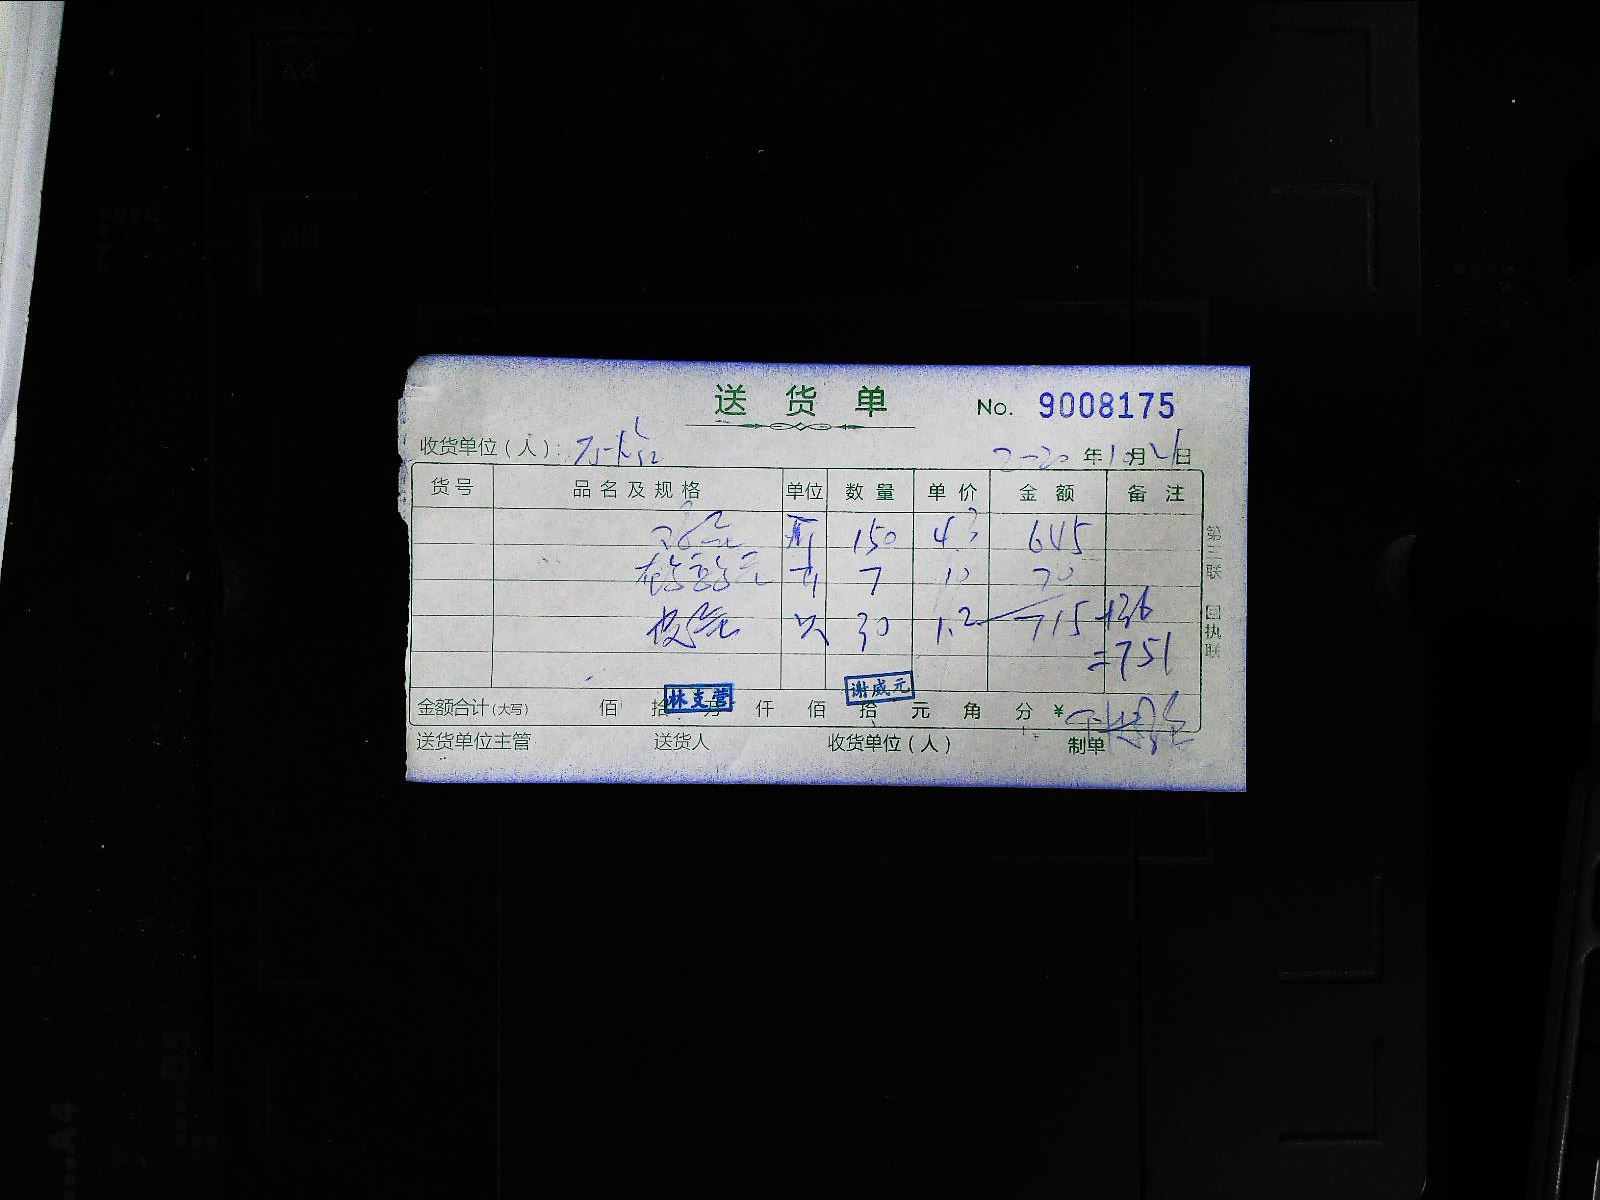 送货单 No. 9008175
收货单位（人）： 2020年10月21日
货号 品名及规格 单位 数量 单价 金额 备注
斤 150 4.3 645
斤 7 10 70
30 1.2 715 +36
=751
金额合计(大写) 佰 拾 万 仟 佰 拾 元 角 分 ¥
林支营
谢威元
送货单位主管 送货人 收货单位（人） 制单
第三联 回执联
A4